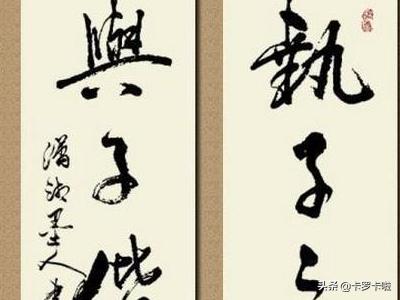 執子之
與子偕
瀟湘墨人
头条 @卡罗卡啦